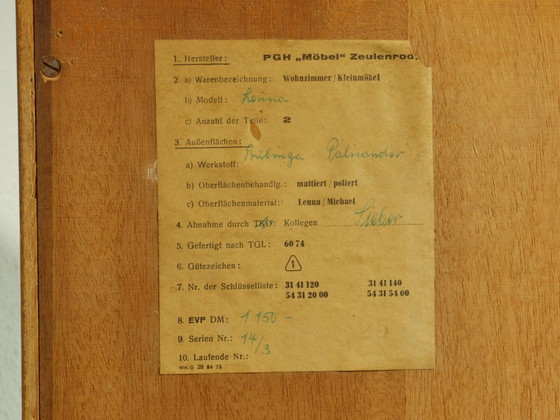 1. Hersteller: PGH „Möbel" Zeulenrod
2. a) Warenbezeichnung: Wohnzimmer/Kleinmöbel
b) Modell:
c) Anzahl der Teile: 2
3. Außenflächen:
Palisander
a) Werkstoff:
b) Oberflächenbehandlg.: mattiert/poliert
c) Oberflächenmaterial: Leuna/Michael
4. Abnahme durch Kollegen
5. Gefertigt nach TGL: 6074
6. Gütezeichen: 1
7. Nr. der Schlüsselliste: 31 41 120 31 41 140
54 31 20 00 54 31 54 00
8. EVP DM: 1 150 -
9. Serien Nr.: 14/3
10. Laufende Nr.: